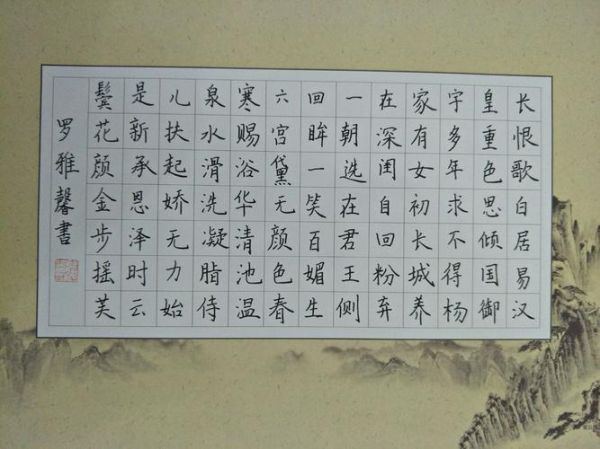 长恨歌白居易汉
皇重色思倾国御
宇多年求不得杨
家有女初长城养
在深闺自回粉弃
一朝选在君王侧
回眸一笑百媚生
六宫黛无颜色春
寒赐浴华清池温
泉水滑洗凝脂侍
儿扶起娇无力始
是新承恩泽时云
鬓花颜金步摇芙
罗雅馨书